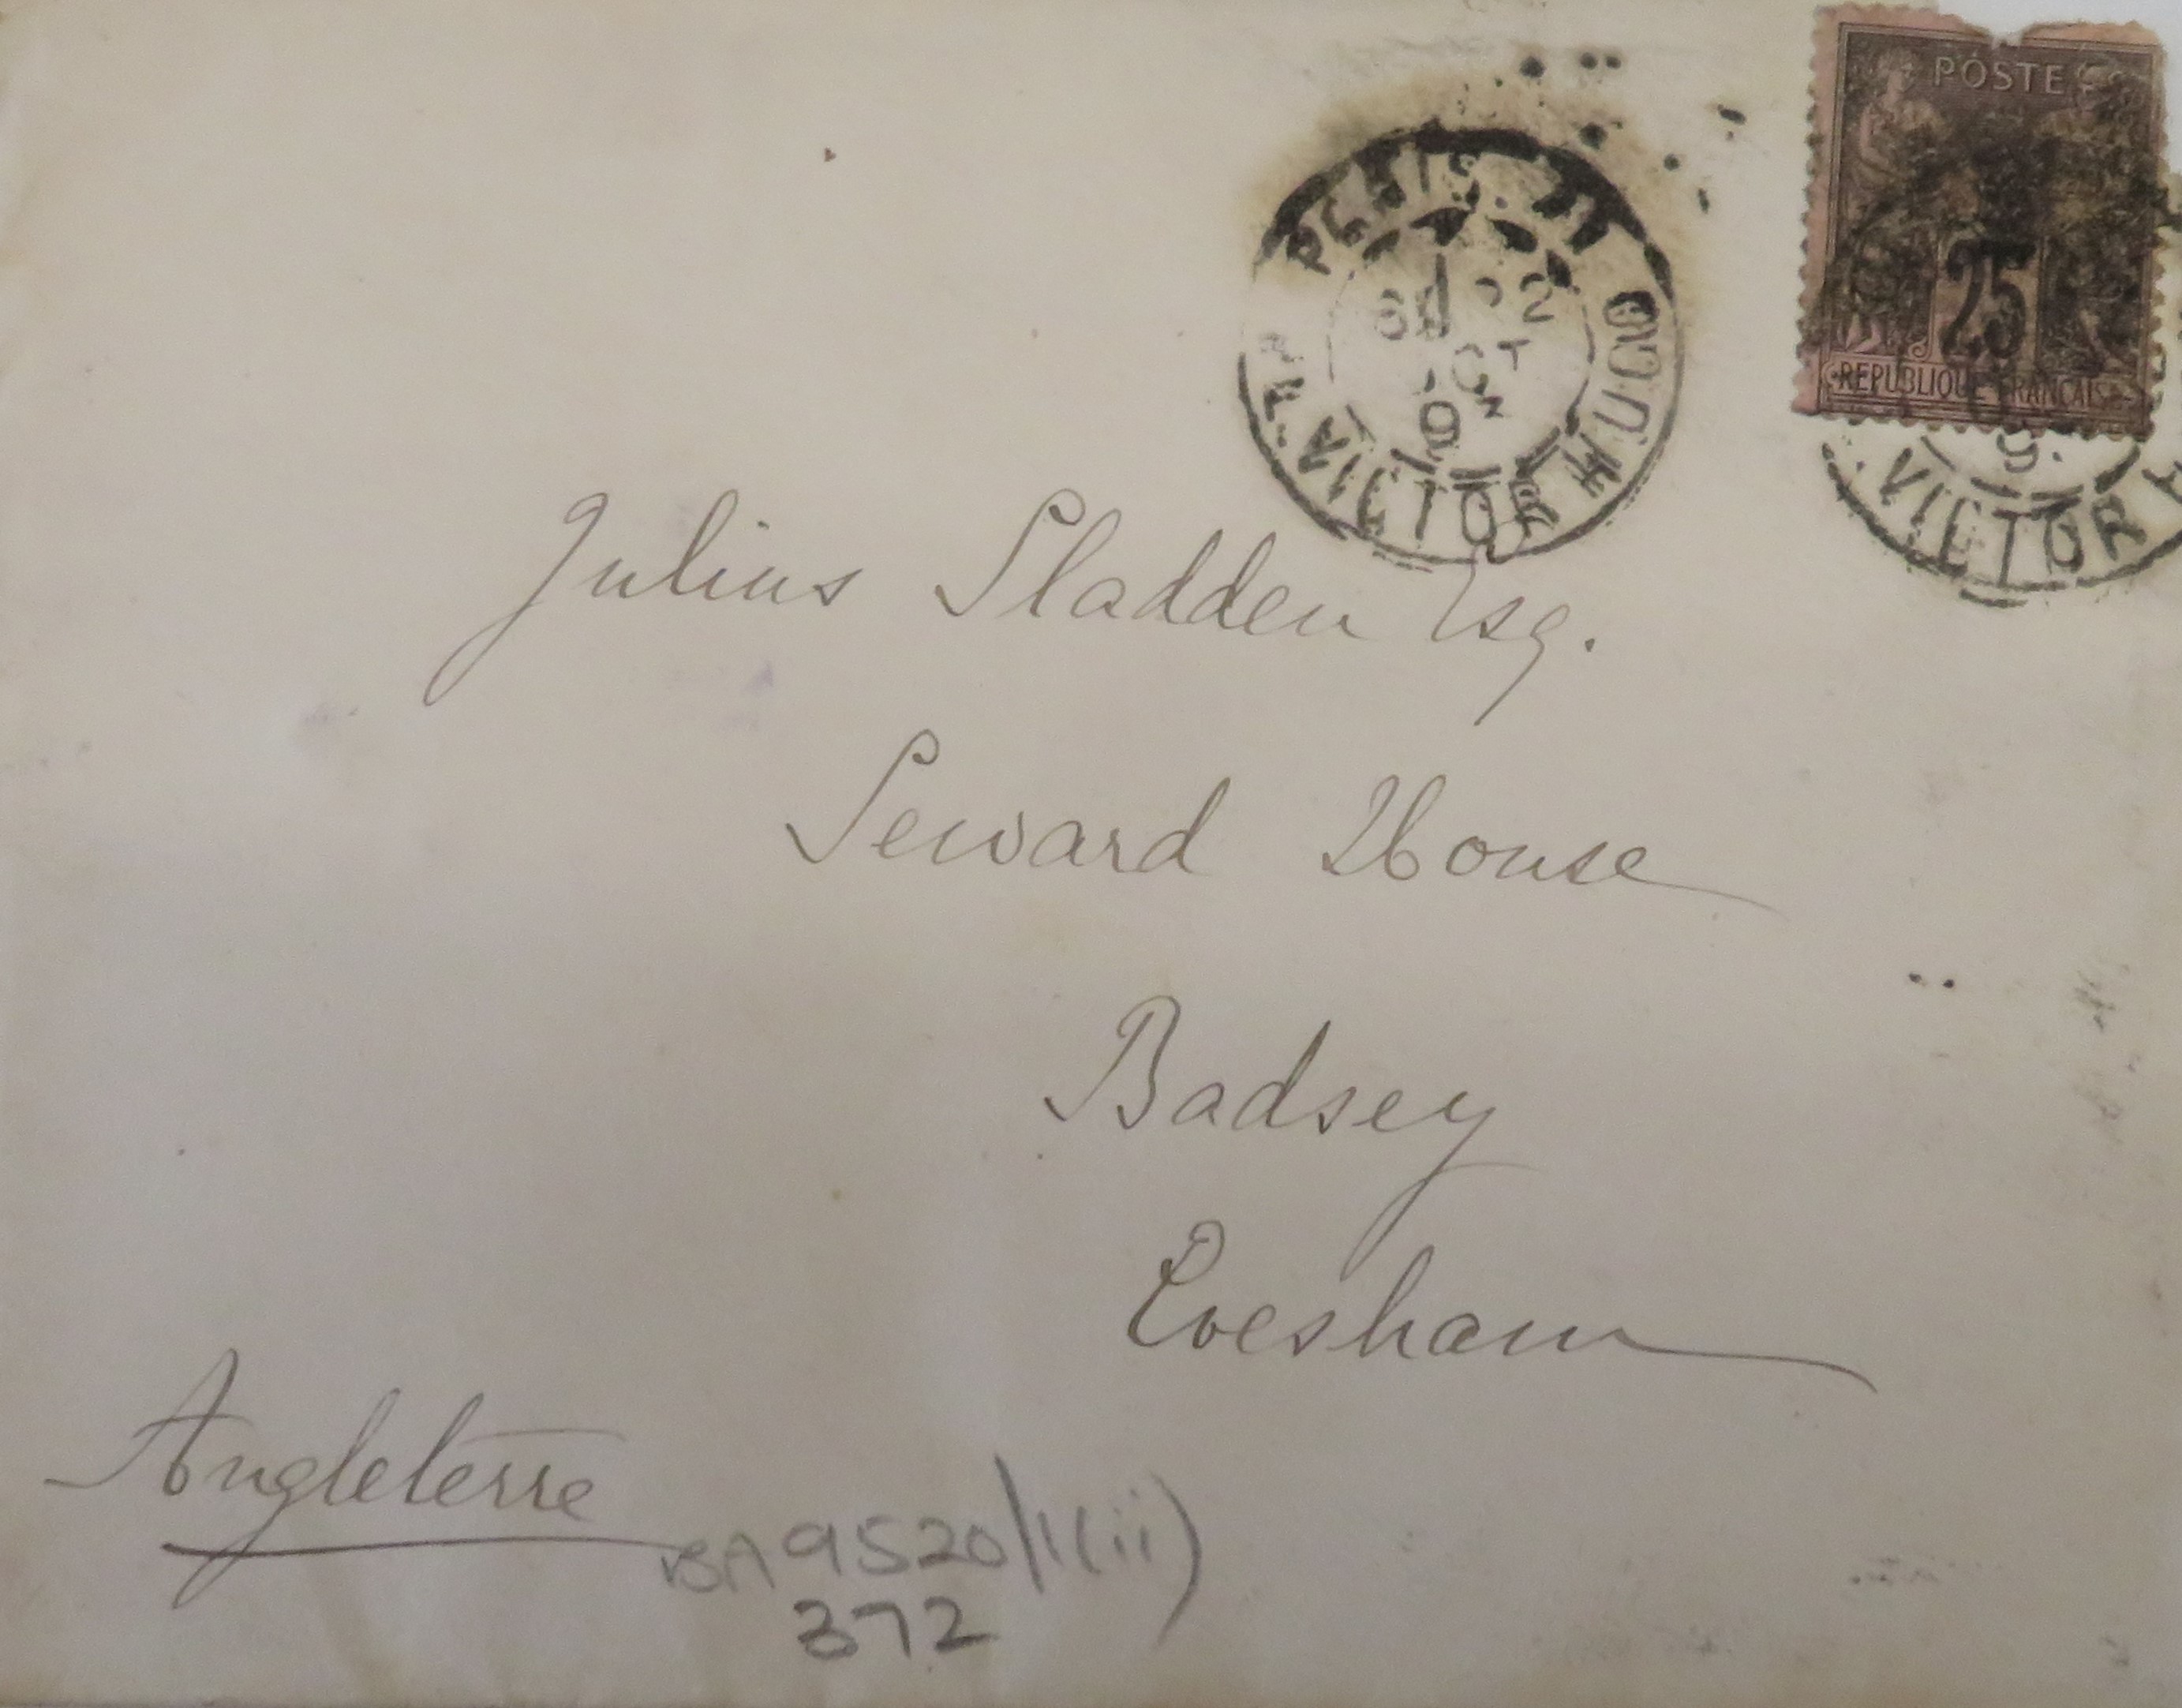 POSTE
25
REPUBLIQUE FRANCAISE
PARIS
22
OCT
9
PL. VICTOR HUGO
9
VICTOR H
Julius Sladden Esq.
Seward House
Badsey
Evesham
Angleterre
BA 9520/1(ii)
372